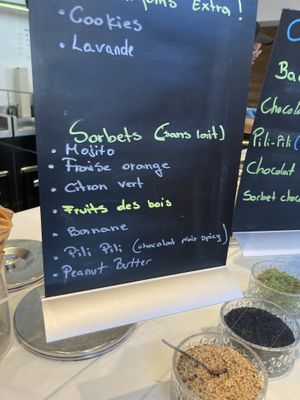 Extra !
• Cookies
• Lavande
Sorbets (sans lait)
• Mojito
• Fraise orange
• Citron vert
• Fruits des bois
• Banane
• Pili Pili (chocolat noir spicy)
• Peanut Butter
Ba
Chocola
Pili-Pili (
Chocolat
Sorbet choc